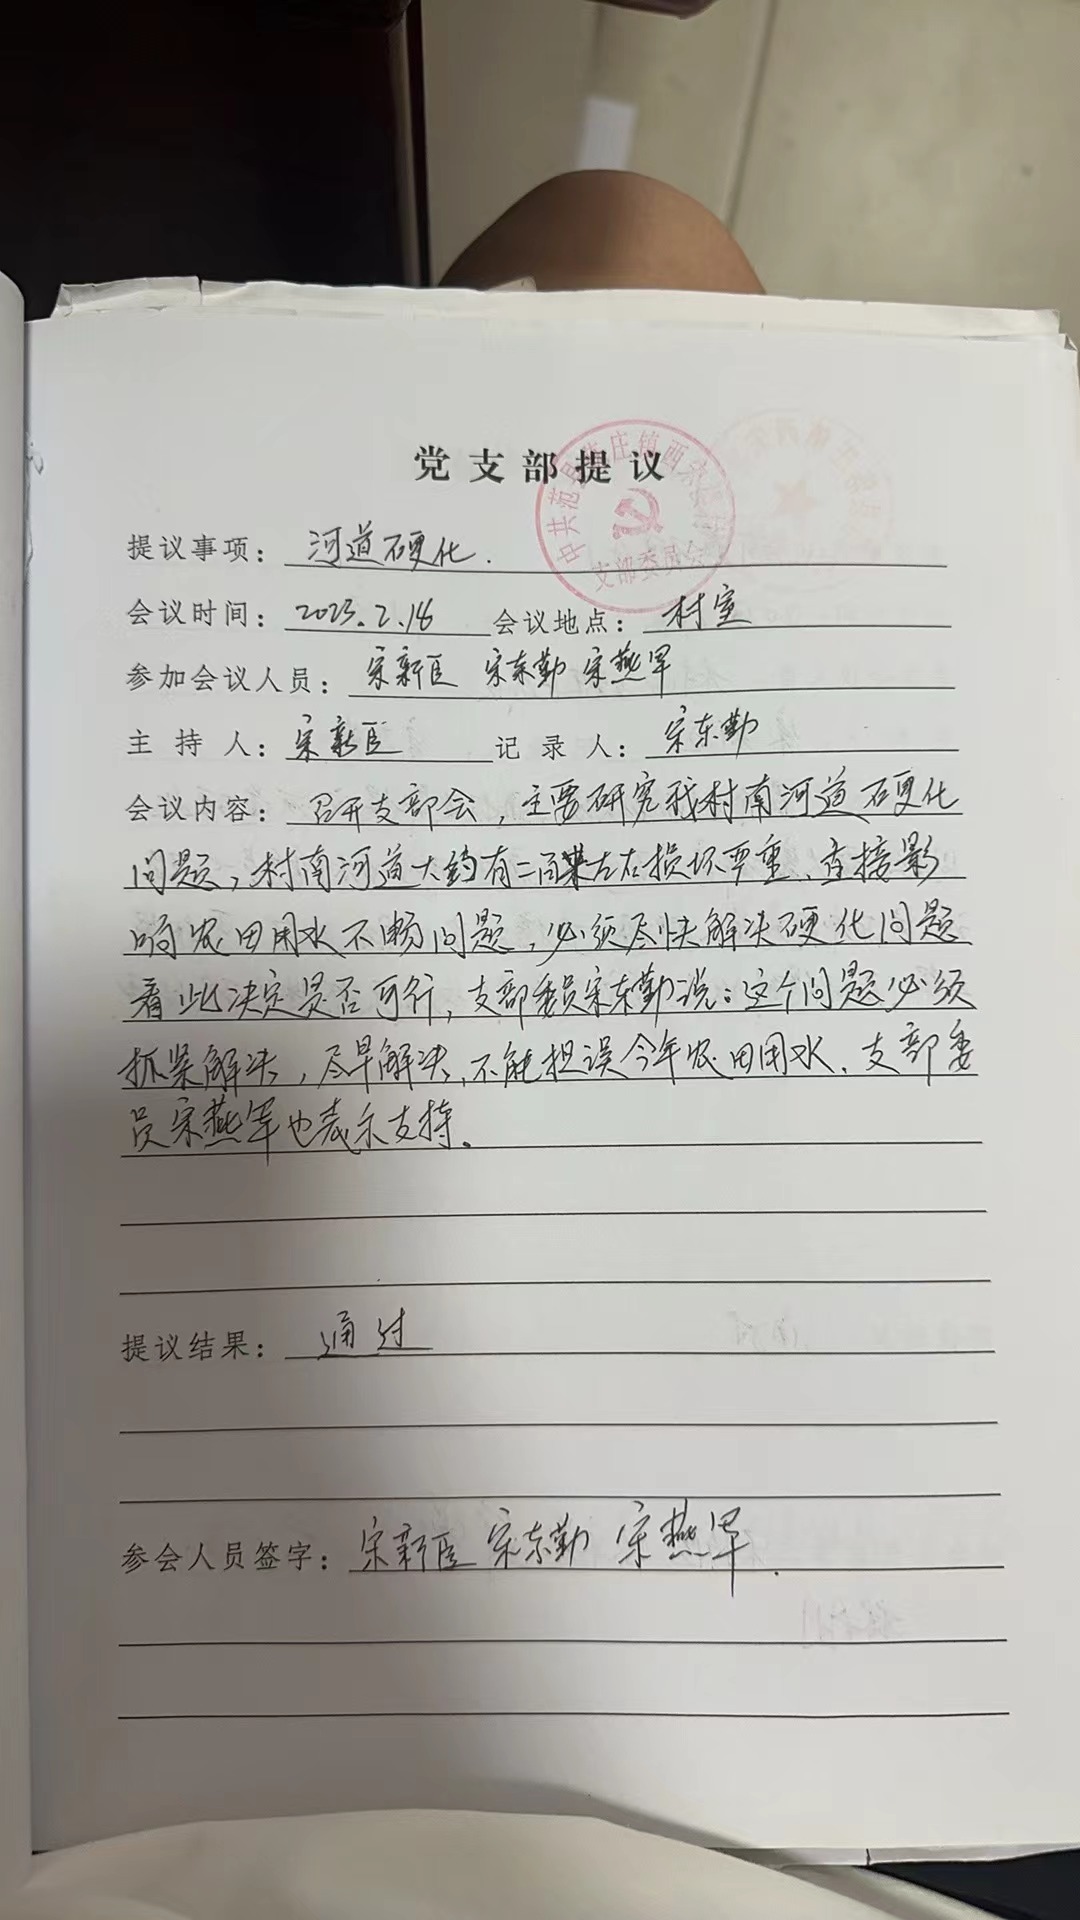 党支部提议
中共范县陈庄镇西宋
支部委员会
提议事项：河道硬化.
会议时间：2023.2.18 会议地点：村室
参加会议人员：宋新臣 宋东勤 宋燕军
主持人：宋新臣 记录人：宋东勤
会议内容：召开支部会，主要研究我村南河道硬化
问题，村南河道大约有二百米左右损坏严重、直接影
响农田用水不畅问题，必须尽快解决硬化问题
看此决定是否可行，支部委员宋东勤说：这个问题必须
抓紧解决，尽早解决，不能担误今年农田用水．支部委
员宋燕军也表示支持。
提议结果：通过
参会人员签字：宋新臣 宋东勤 宋燕军.